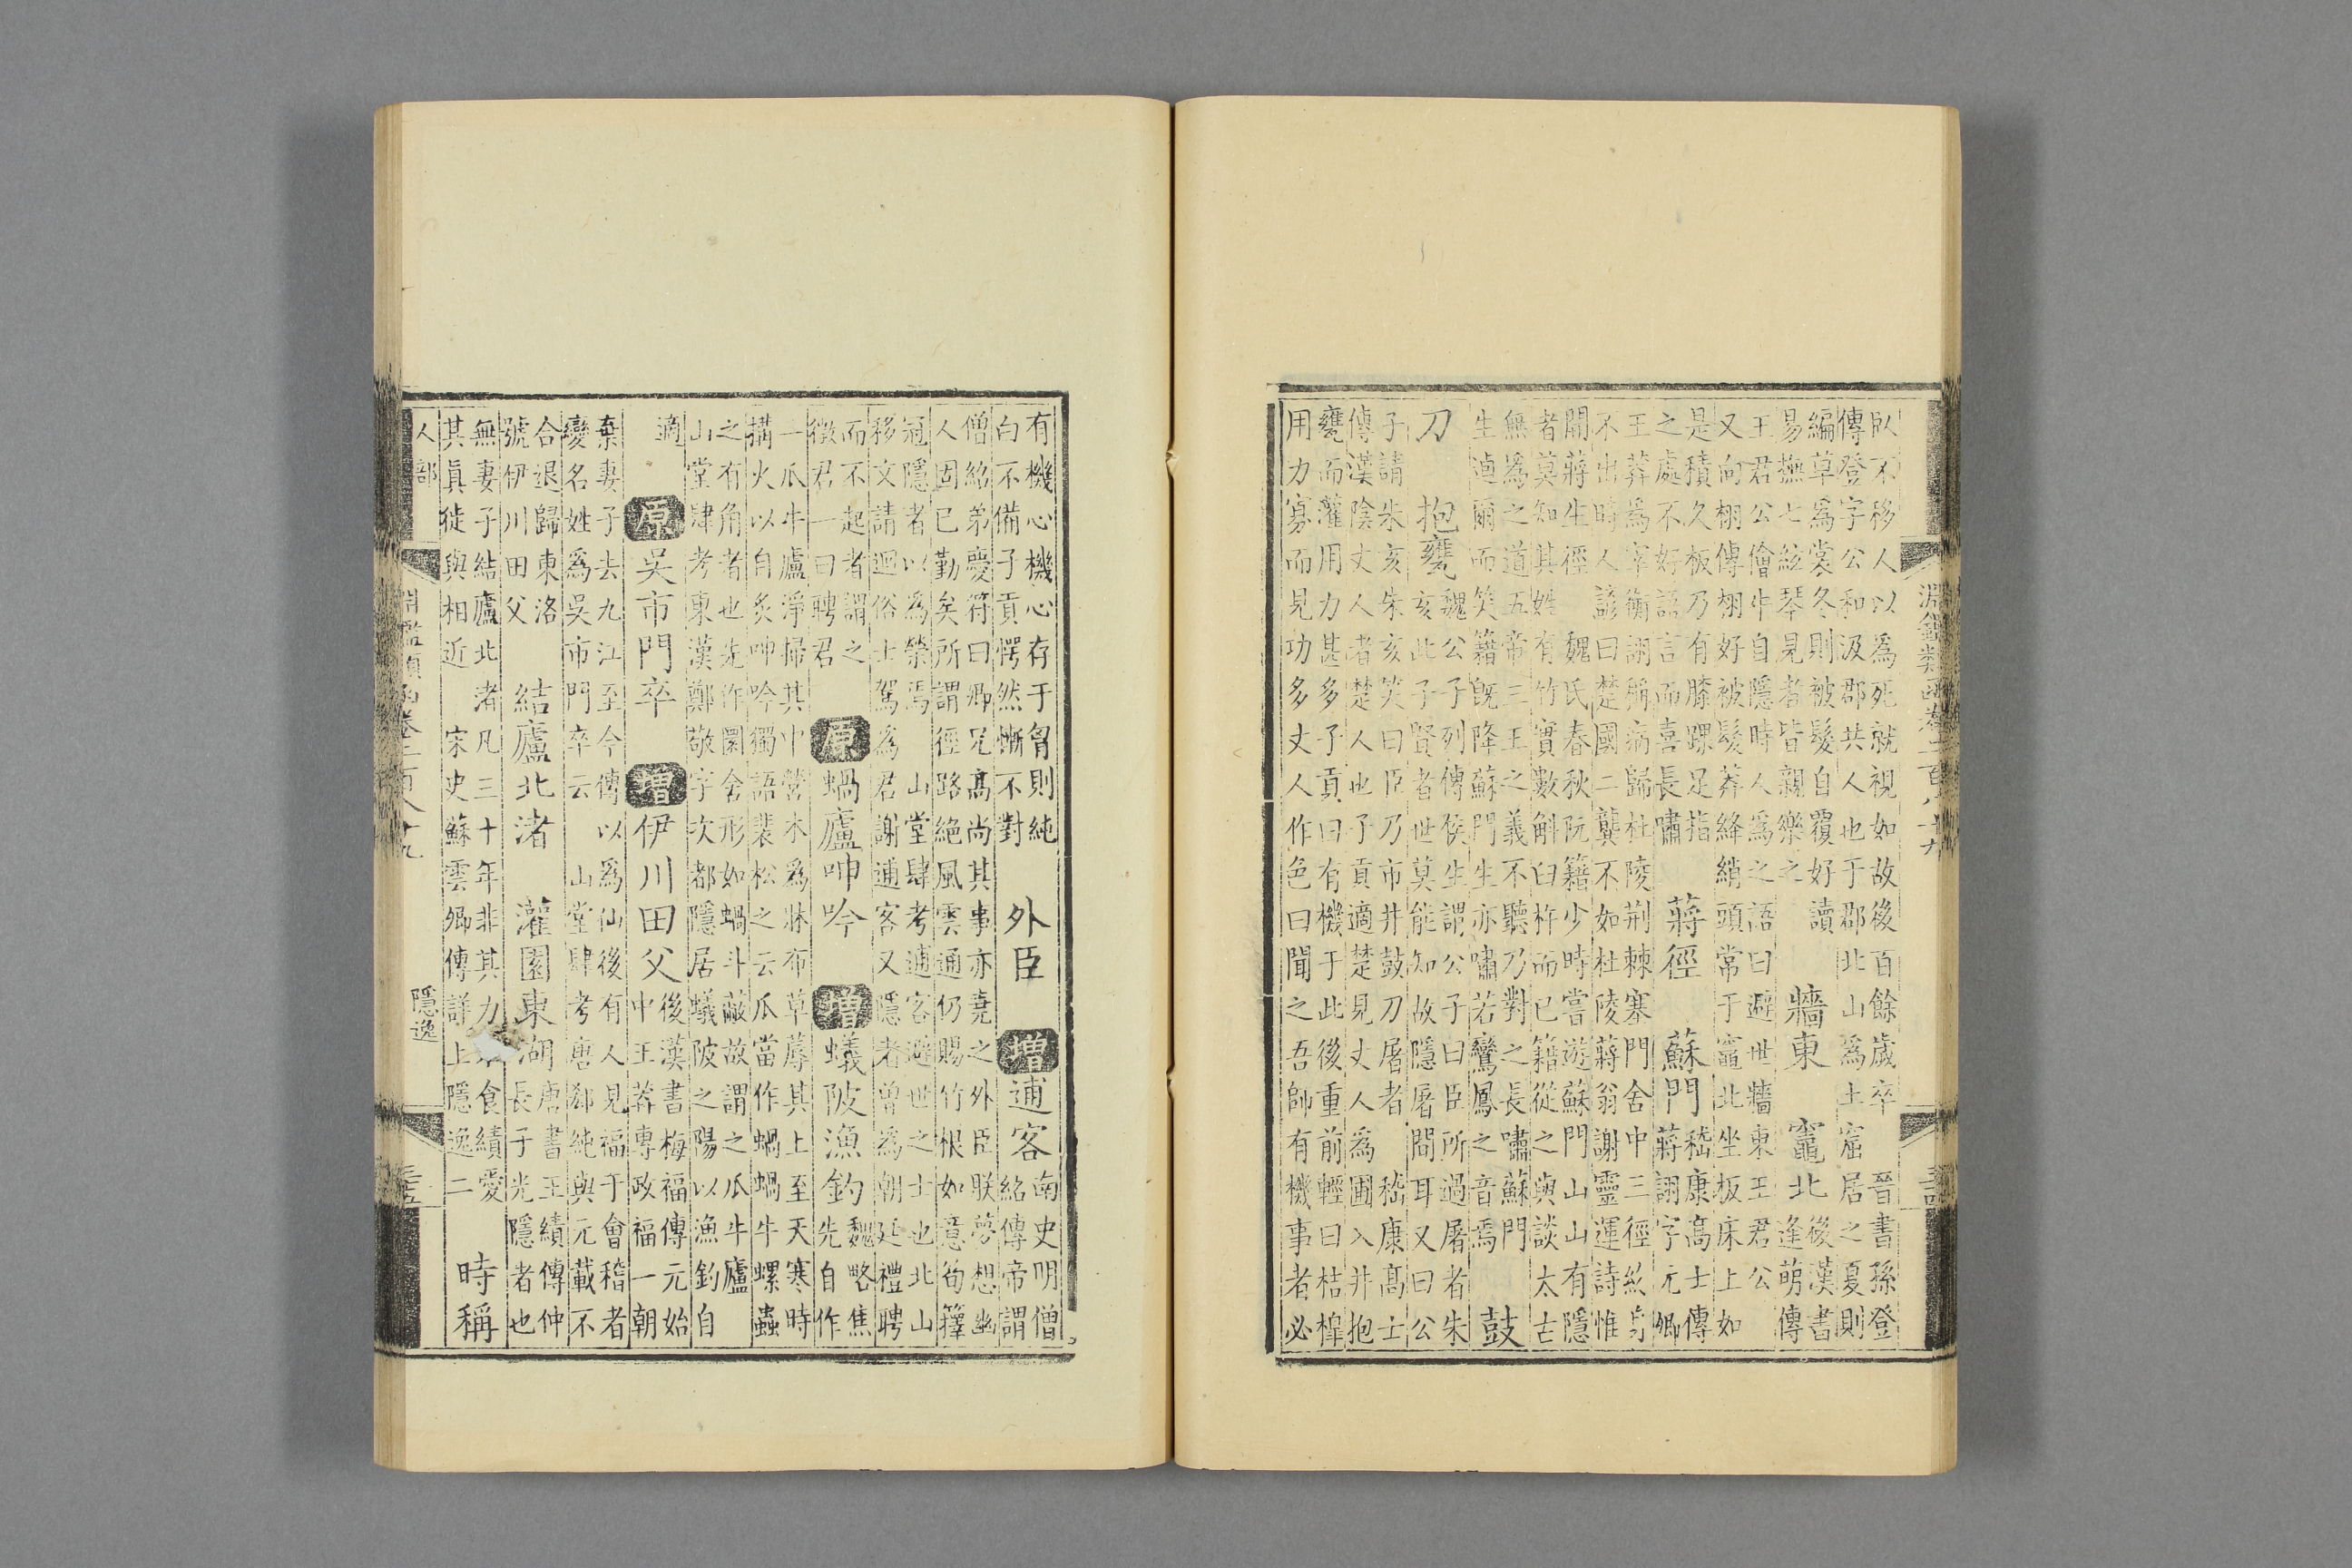 淵鑑類函卷二百八十九
臥不移人以為死就視如故後百餘歲卒　晉書孫登
傳登字公和汲郡共人也于郡北山為土窟居之夏則
編草為裳冬則被髮自覆好讀
易撫七絃琴見者皆親樂之
牆東　竈北
後漢書
逢萌傳
王君公儈牛自隱時人為之語曰避世牆東王君公
又向栩傳栩好被髮莽絳綃頭常于竈北坐板床上如
是積久板乃有膝踝足指
之處不好語言而喜長嘯
蔣徑　蘇門
嵇康高士傳
蔣詡字元卿
王莽為宰衡詡稱病歸杜陵荆棘塞門舍中三徑終身
不出時人諺曰楚國二龔不如杜陵蔣翁謝靈運詩惟
開蔣生徑　魏氏春秋阮籍少時嘗遊蘇門山山有隱
者莫知其姓有竹實數斛臼杵而已籍從之與談太古
無為之道五帝三王之義不聽乃對之長嘯蘇門
生逌爾而笑籍既降蘇門生亦嘯若鸞鳳之音焉
鼓
刀　抱甕
魏公子列傳侯生謂公子曰臣所過屠者朱
亥此子賢者世莫能知故隱屠間耳又曰公
子請朱亥朱亥笑曰臣乃市井鼓刀屠者　嵇康高士
傳漢陰丈人者楚人也子貢適楚見丈人為圃入井抱
甕而灌用力甚多子貢曰有機于此後重前輕曰桔槔
用力寡而見功多丈人作色曰聞之吾師有機事者必
有機心機心存于胷則純
白不備子貢愕然慚不對
外臣　增逋客
南史明僧
紹傳帝謂
僧紹弟慶符曰卿兄高尚其事亦堯之外臣朕夢想幽
人固已勤矣所謂徑路絕風雲通仍賜竹根如意筍籜
冠隱者以為榮焉　山堂肆考逋客避世之士也北山
移文請迴俗士駕為君謝逋客又隱者曾為朝廷禮聘
而不起者謂之
徵君一曰聘君
原蝸廬呻吟　增蟻陂漁釣
魏略焦
先自作
一瓜牛廬淨掃其中營木為牀布草蓐其上至天寒時
搆火以自炙呻吟獨語裴松之云瓜當作蝸蝸牛螺蟲
之有角者也先作圜舍形如蝸斗蔽故謂之瓜牛廬
山堂肆考東漢鄭敬字次都隱居蟻陂之陽以漁釣自
適
原吳市門卒　增伊川田父
後漢書梅福傳元始
中王莽專政福一朝
棄妻子去九江至今傳以為仙後有人見福于會稽者
變名姓為吳市門卒云　山堂肆考唐郄純與元載不
合退歸東洛
號伊川田父
結廬北渚　灌園東湖
唐書王績傳仲
長子光隱者也
無妻子結廬北渚凡三十年非其力食績愛
其真徙與相近　宋史蘇雲卿傳詳上隱逸二
時稱
人部　淵鑑類函卷二百八十九　隱逸　三五